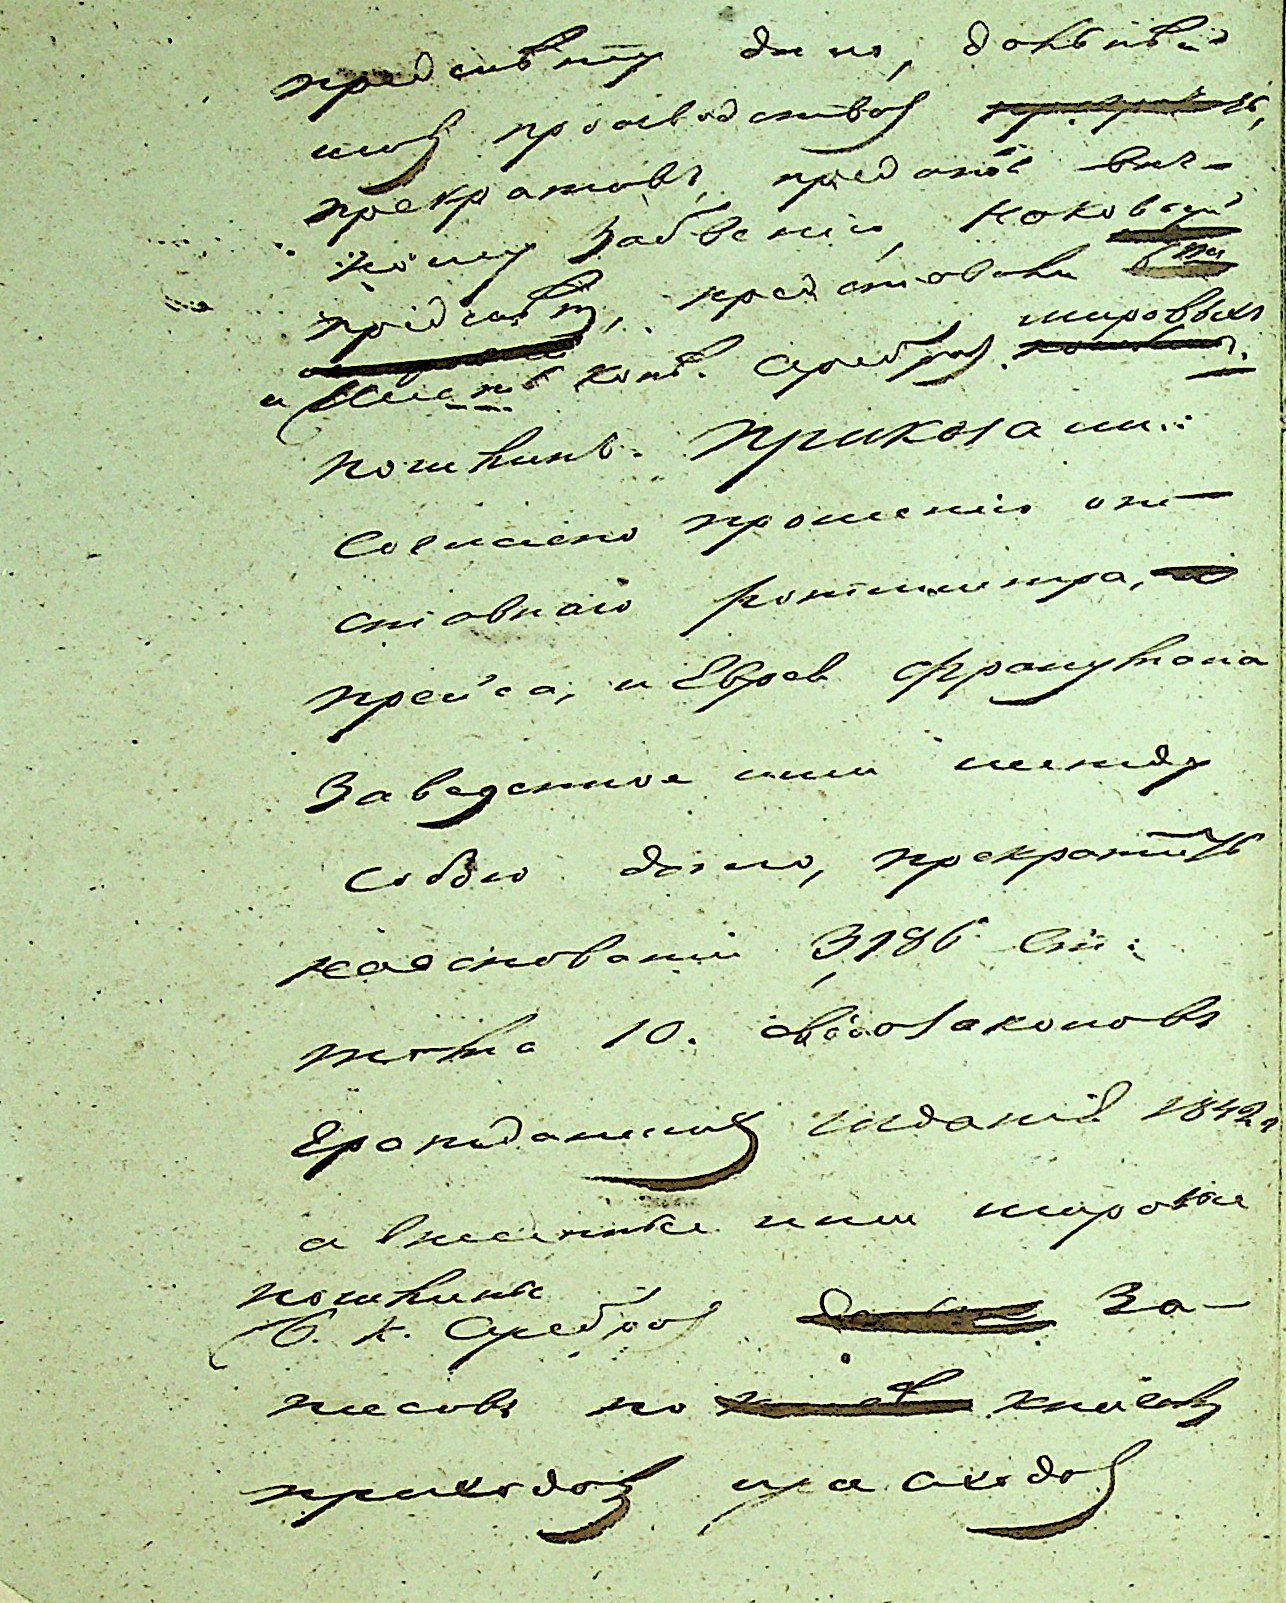 предмѣту дѣло, дальнѣй
шимъ производствомъ
прекративъ, предать вѣч-
ному забвенію, каковой
представили
и шесть коп. серебромъ мировыхъ
пошлинъ. Приказали:
Согласно прошенію от-
ставнаго Ротмистра,
Прейса, и Еврея
Заведенное ими между
собою дѣло, прекратить
на основаніи 3186 ст:
тома 10. свода законовъ
Гражданскихъ изданія 1842 г
а внесенные ими мировые
пошлины
6. к. Серебромъ За-
писавъ по книгамъ
прихода и расхода